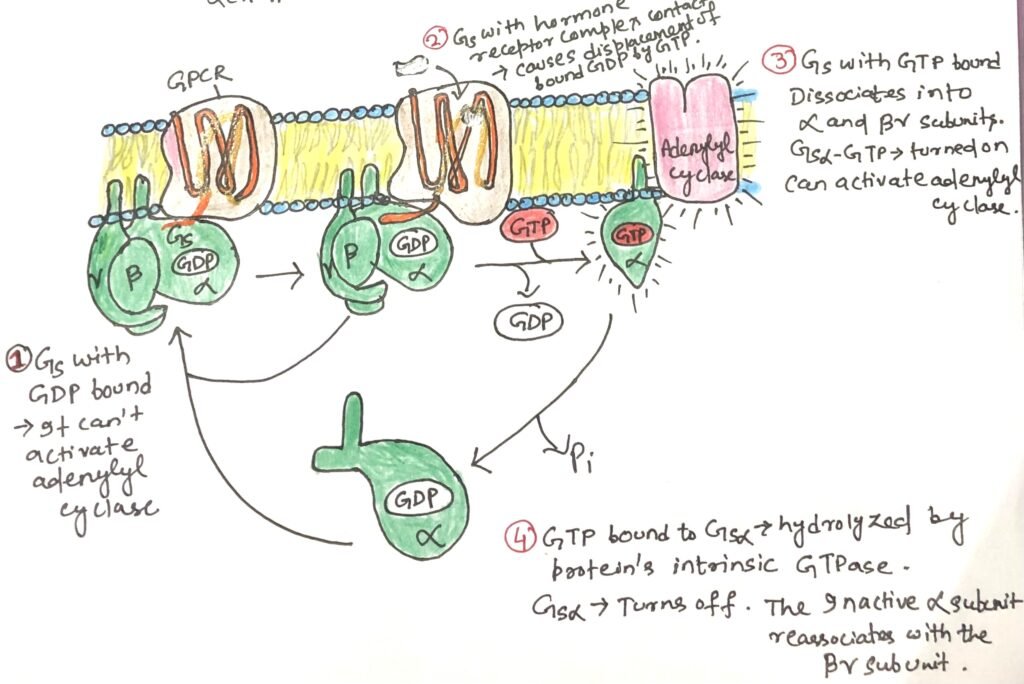 GPCR
② Gs with hormone
receptor complex contact
→ causes displacement of
bound GDP by GTP.
③ Gs with GTP bound
Dissociates into
α and βγ subunits.
Gsα-GTP → turned on
can activate adenylyl
cyclase.
Adenylyl
cyclase
Gs
GDP
α
β
γ
GDP
α
β
γ
GTP
GDP
GTP
α
① Gs with
GDP bound
→ It can't
activate
adenylyl
cyclase
Pi
GDP
α
④ GTP bound to Gsα → hydrolyzed by
protein's intrinsic GTPase.
Gsα → Turns off. The Inactive α subunit
reassociates with the
βγ subunit.